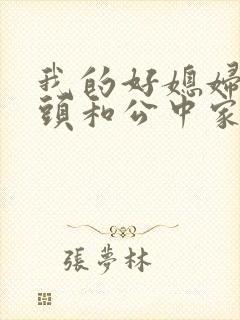 我的好媳婦
頭和公中家
張夢林